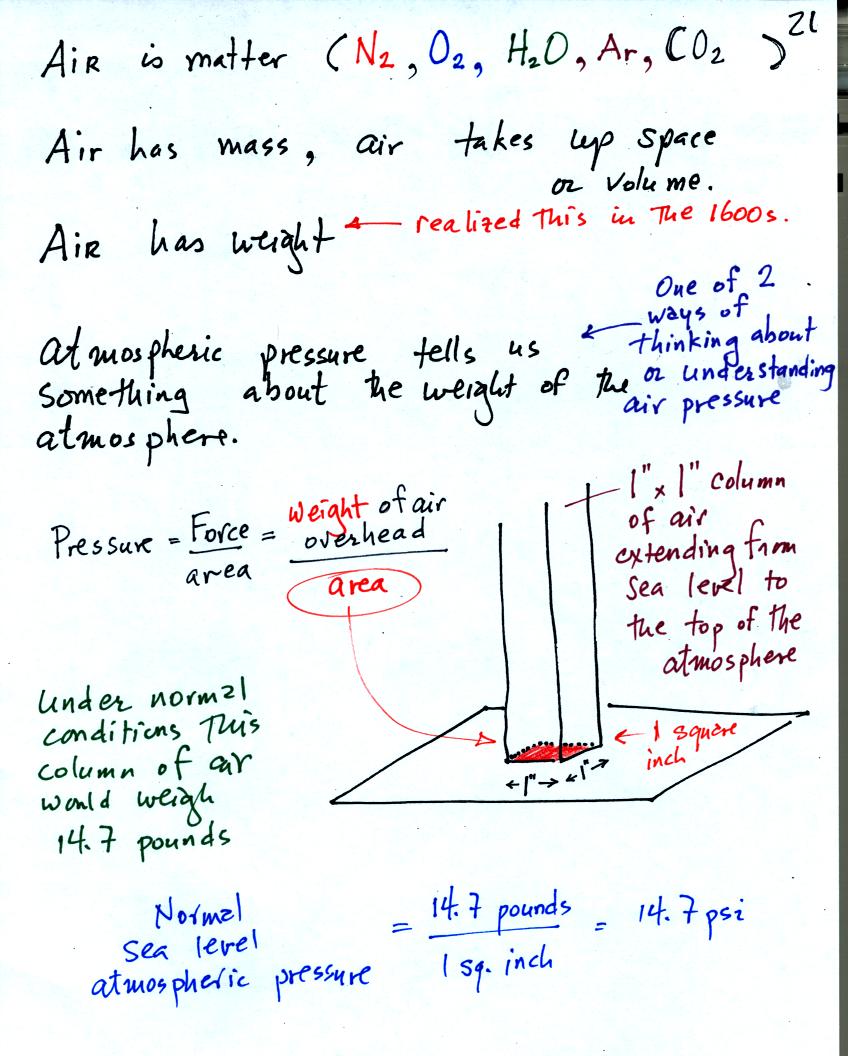 21
Air is matter (N₂, O₂, H₂O, Ar, CO₂ )
Air has mass, air takes up space
or volume.
Air has weight ← realized this in the 1600s.
One of 2
ways of
thinking about
or understanding
air pressure
atmospheric pressure tells us
something about the weight of the
atmosphere.
Pressure = Force/area = weight of air overhead/area
1" x 1" column
of air
extending from
sea level to
the top of the
atmosphere
Under normal
conditions this
column of air
would weigh
14.7 pounds
← 1 square
inch
←1"→ ←1"→
Normal
sea level
atmospheric pressure
= 14.7 pounds/1 sq. inch = 14.7 psi